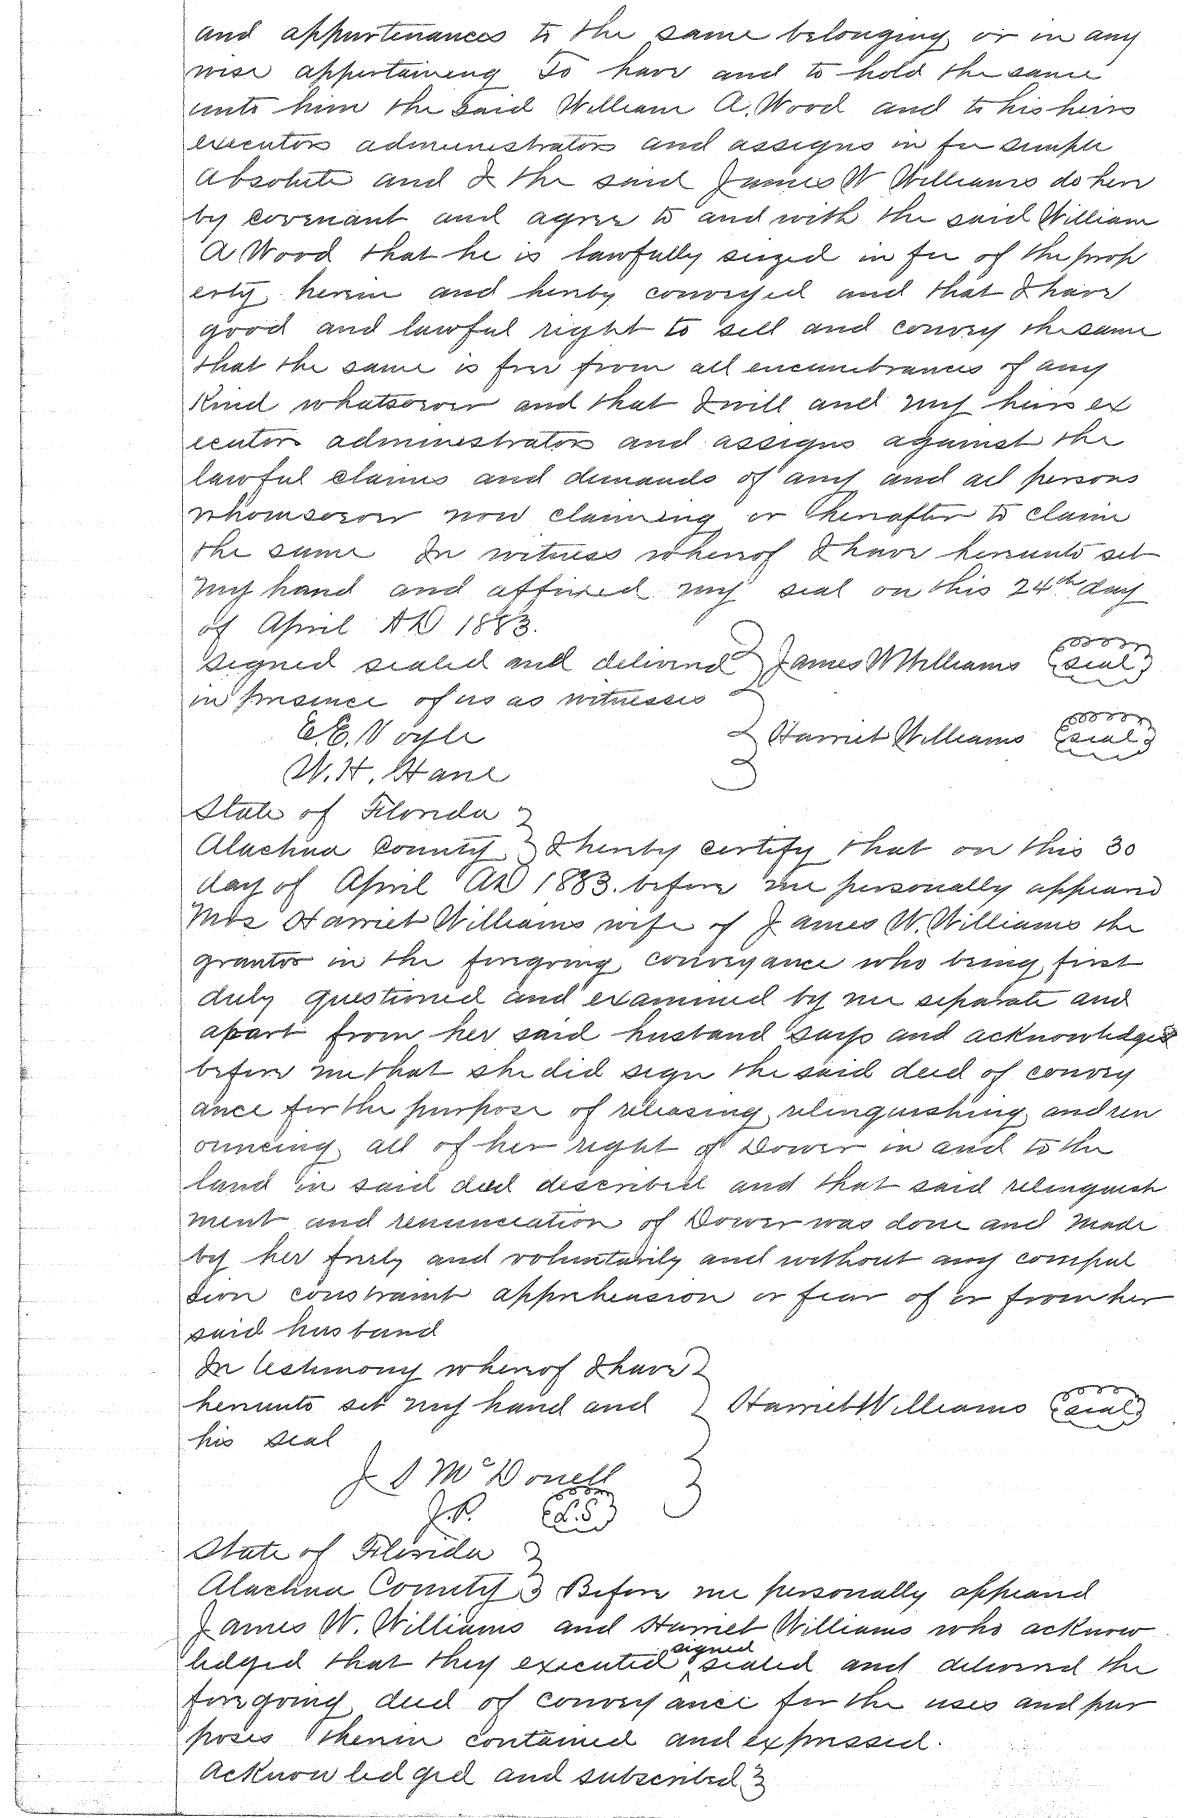 and appurtenances to the same belonging or in any
wise appertaining To have and to hold the same
unto him the said William A. Wood and to his heirs
executors administrators and assigns in fee simple
Absolute and I the said James W Williams do here
by covenant and agree to and with the said William
A Wood that he is lawfully seized in fee of the prop
erty herein and hereby conveyed and that I have
good and lawful right to sell and convey the same
that the same is free from all encumbrances of any
Kind whatsoever and that I will and my heirs ex
ecutors administrators and assigns against the
lawful claims and demands of any and all persons
whomsoever now claiming or hereafter to claim
the same In witness whereof I have hereunto set
my hand and affixed my seal on this 24th day
of April AD 1883.
signed sealed and delivered James W Williams seal
in presence of us as witnesses
E. E. Voyle Harriet Williams seal
W. H. Hane
State of Florida
Alachua County I hereby certify that on this 30
day of April AD 1883. before me personally appeared
Mrs Harriet Williams wife of James W. Williams the
grantor in the foregoing conveyance who being first
duly questioned and examined by me separate and
apart from her said husband says and acknowledges
before me that she did sign the said deed of convey
ance for the purpose of releasing relinquishing and ren
ouncing all of her right of Dower in and to the
land in said deed described and that said relinquish
ment and renunciation of Dower was done and made
by her freely and voluntarily and without any compul
sion constraint apprehension or fear of or from her
said husband
In testimony whereof I have
hereunto set my hand and Harriet Williams seal
his seal
J S McDonell
J.P. L.S
State of Florida
Alachua County Before me personally appeared
James W. Williams and Harriet Williams who acknow
ledged that they executed signed sealed and delivered the
foregoing deed of conveyance for the uses and pur
poses therein contained and expressed.
Acknowledged and subscribed